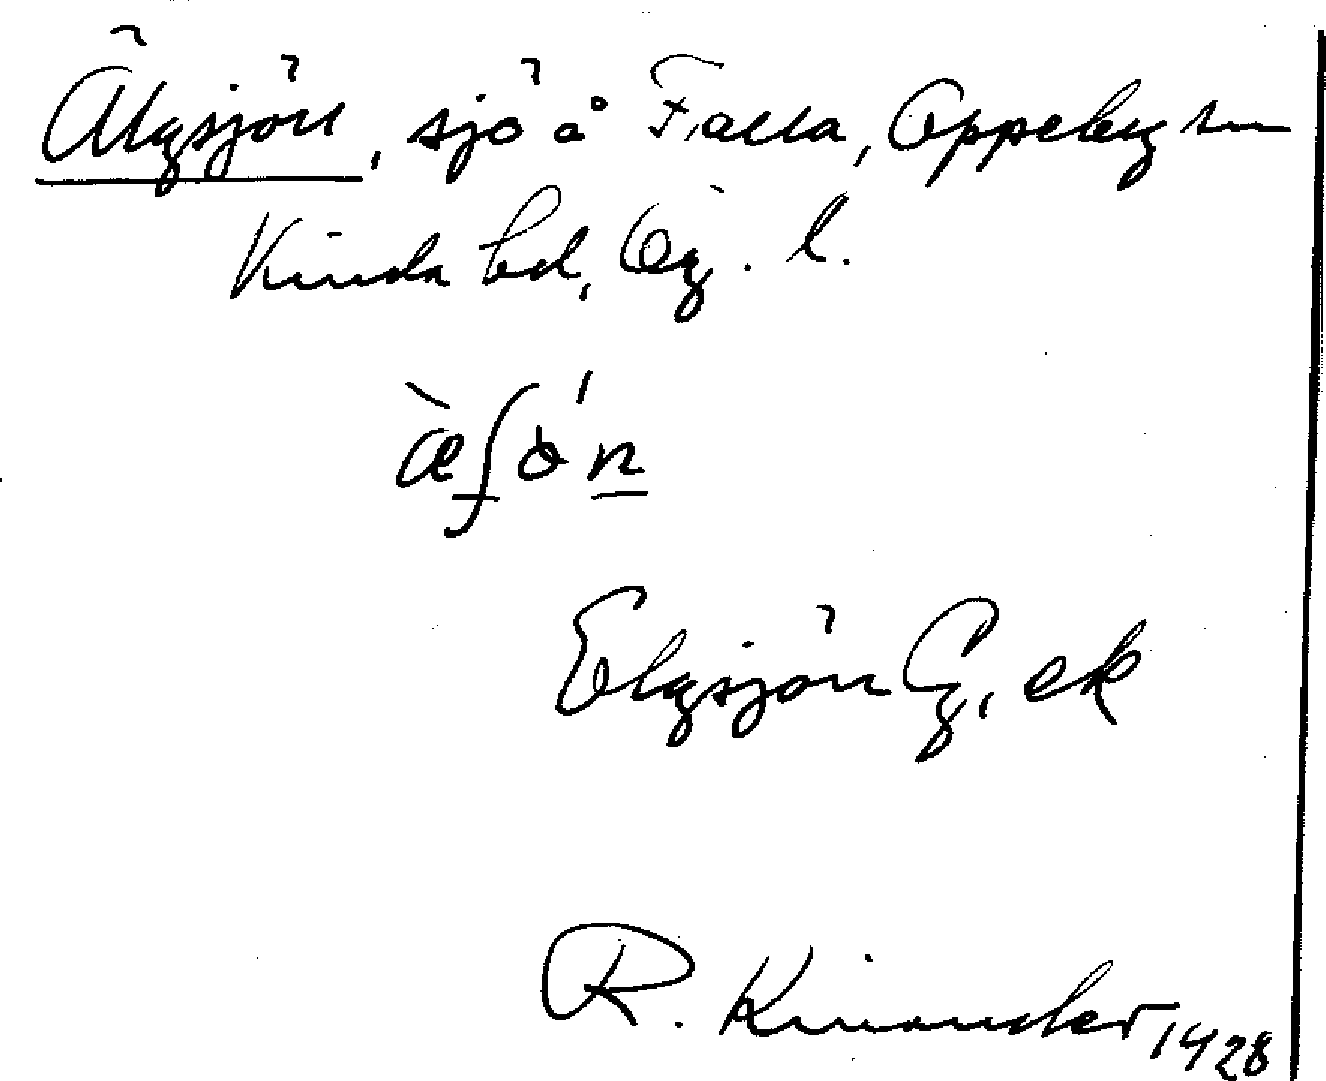 Älgsjön, sjö å Falla, Oppeby sn
Kinda hd, Ög. l.
Elgsjön Gg, ek
R. Kinander 1928